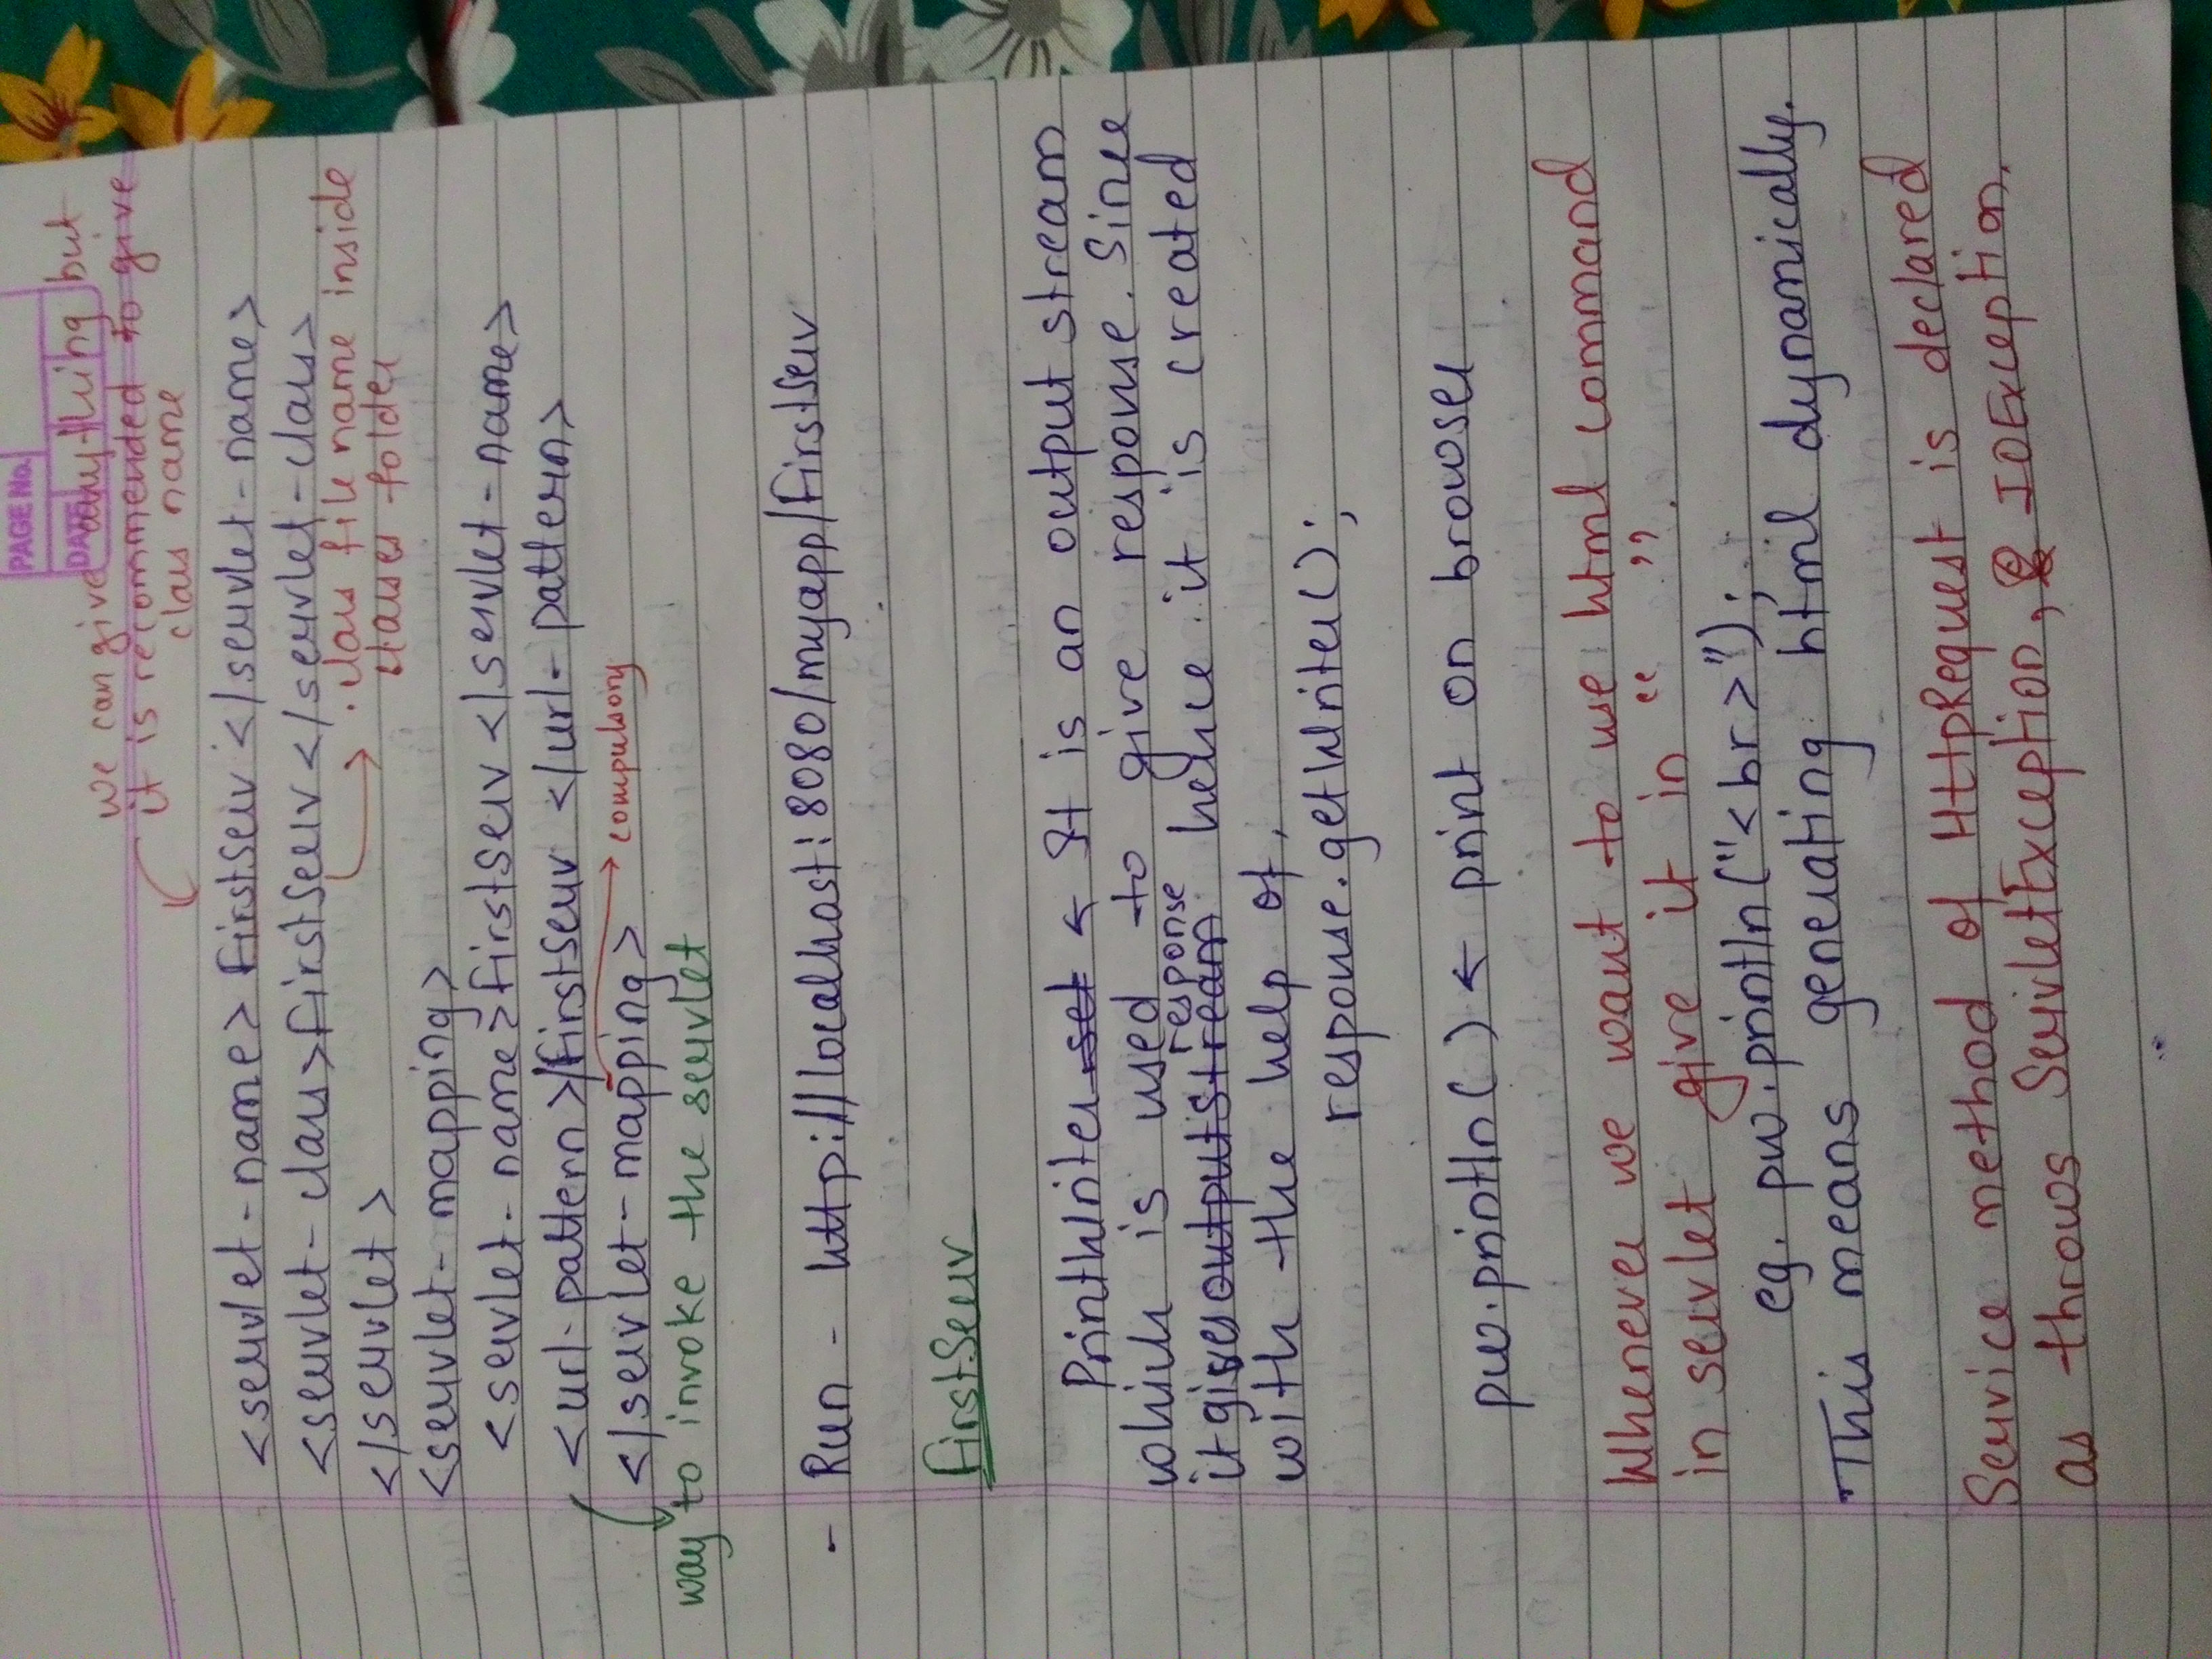 PAGE No.
DATE
we can give anything but
it is recommended to give
class name
<servlet-name> FirstServ </servlet-name>
<servlet-class>FirstServ</servlet-class>
.class file name inside
classes folder
</servlet>
<servlet-mapping>
<servlet-name>FirstServ</servlet-name>
<url-pattern>/FirstServ </url-pattern>
compulsory
</servlet-mapping>
way to invoke the servlet
- Run - http://localhost:8080/myapp/FirstServ
FirstServ
PrintWriter set ← It is an output stream
which is used to give response. Since
response
it gives outputstream hence it is created
with the help of,
response.getWriter();
pw.println( ) ← print on browser
Whenever we want to use html command
in servlet give it in “ ”.
eg. pw.println("<br>");
This means generating html dynamically.
Service method of HttpRequest is declared
as throws ServletException, IOException.